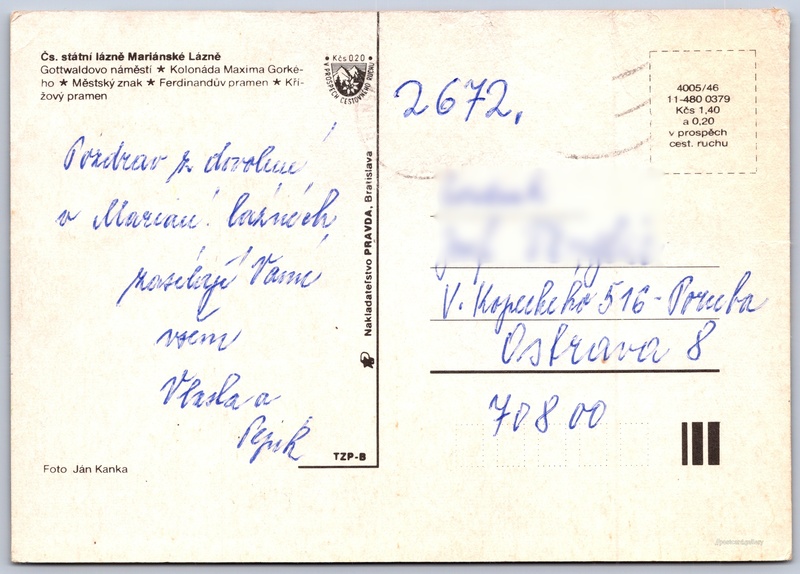 Čs. státní lázně Mariánské Lázně
Gottwaldovo náměstí ★ Kolonáda Maxima Gorké-
ho ★ Městský znak ★ Ferdinandův pramen ★ Kří-
žový pramen
• Kčs 0,20 •
V PROSPĚCH CESTOVNÍHO RUCHU
Pozdrav z dovolené
v Marián. lázních
zasílají Vám
všem
Vlasta a
Pepík
Foto Ján Kanka
Nakladateľstvo PRAVDA, Bratislava
TZP-B
2672.
4005/46
11-480 0379
Kčs 1,40
a 0,20
v prospěch
cest. ruchu
V. Kopeckého 516 - Poruba
Ostrava 8
708 00